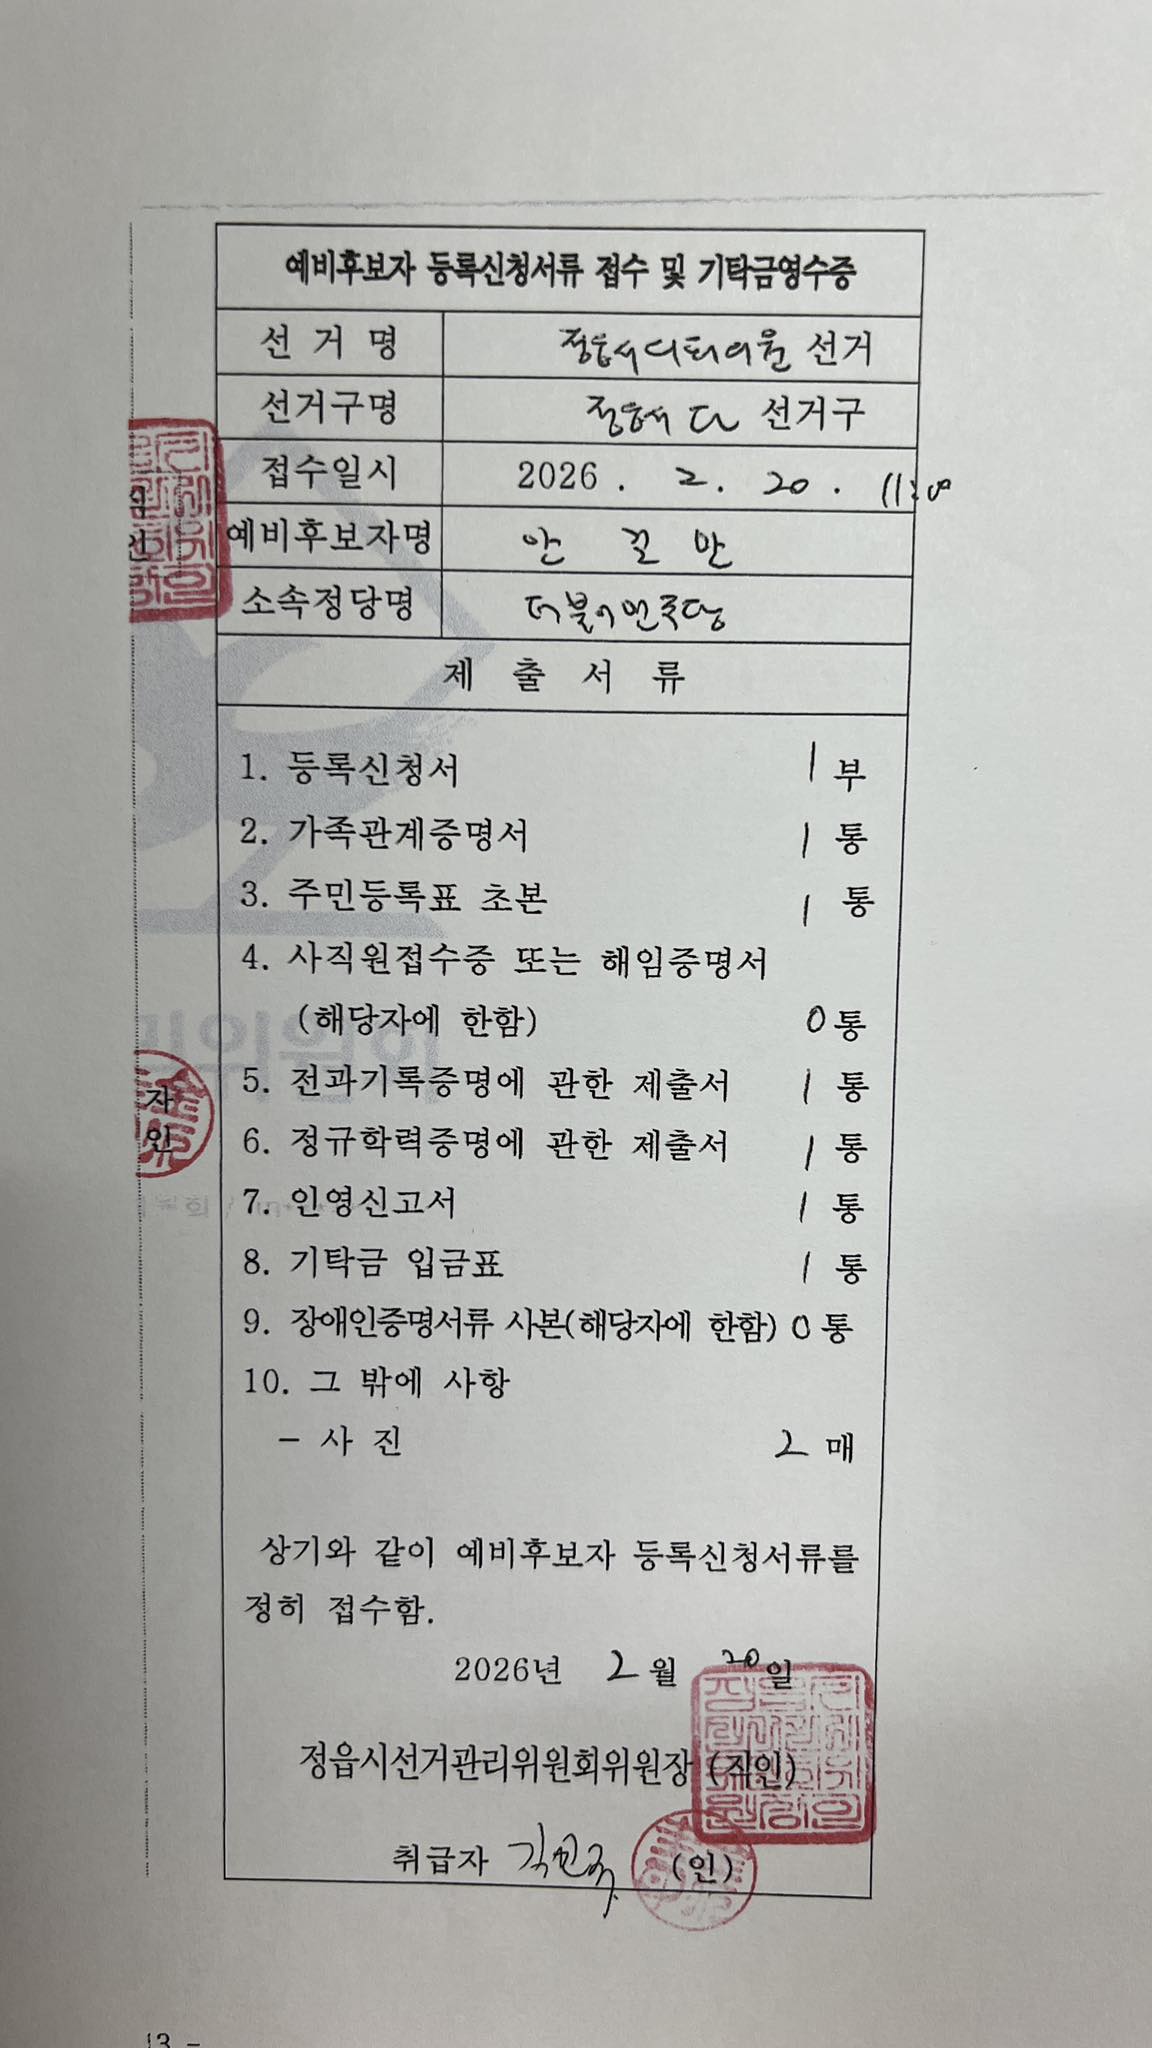 예비후보자 등록신청서류 접수 및 기탁금영수증
선 거 명 정읍시의회의원 선거
선거구명 정읍시 다 선거구
접수일시 2026. 2. 20.
예비후보자명 안 길 만
소속정당명 더불어민주당
제 출 서 류
1. 등록신청서 1 부
2. 가족관계증명서 1 통
3. 주민등록표 초본 1 통
4. 사직원접수증 또는 해임증명서
(해당자에 한함) 0 통
5. 전과기록증명에 관한 제출서 1 통
6. 정규학력증명에 관한 제출서 1 통
7. 인영신고서 1 통
8. 기탁금 입금표 1 통
9. 장애인증명서류 사본(해당자에 한함) 0 통
10. 그 밖에 사항
- 사 진 2 매
상기와 같이 예비후보자 등록신청서류를
정히 접수함.
2026년 2월 20일
정읍시선거관리위원회위원장 (직인)
취급자 (인)
자
인
13 -